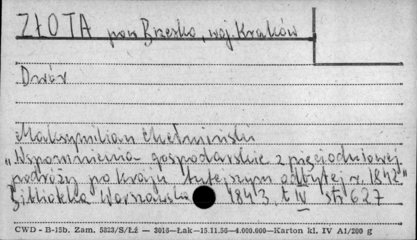 ZŁOTA pow Brzesko, woj. Kraków
Dwór
Maksymilian Chełmiński
„Wspomnienia gospodarskie z pięciodniowej
podróży po kraju tutejszym odbytej r. 1842"
Biblioteka Warszawska 1843. t IV str 627
CWD - B-15b. Zam. 5823/S/Łź — 3016—Łak—15.11.56—4.000.000—Karton kl. IV A1/200 g